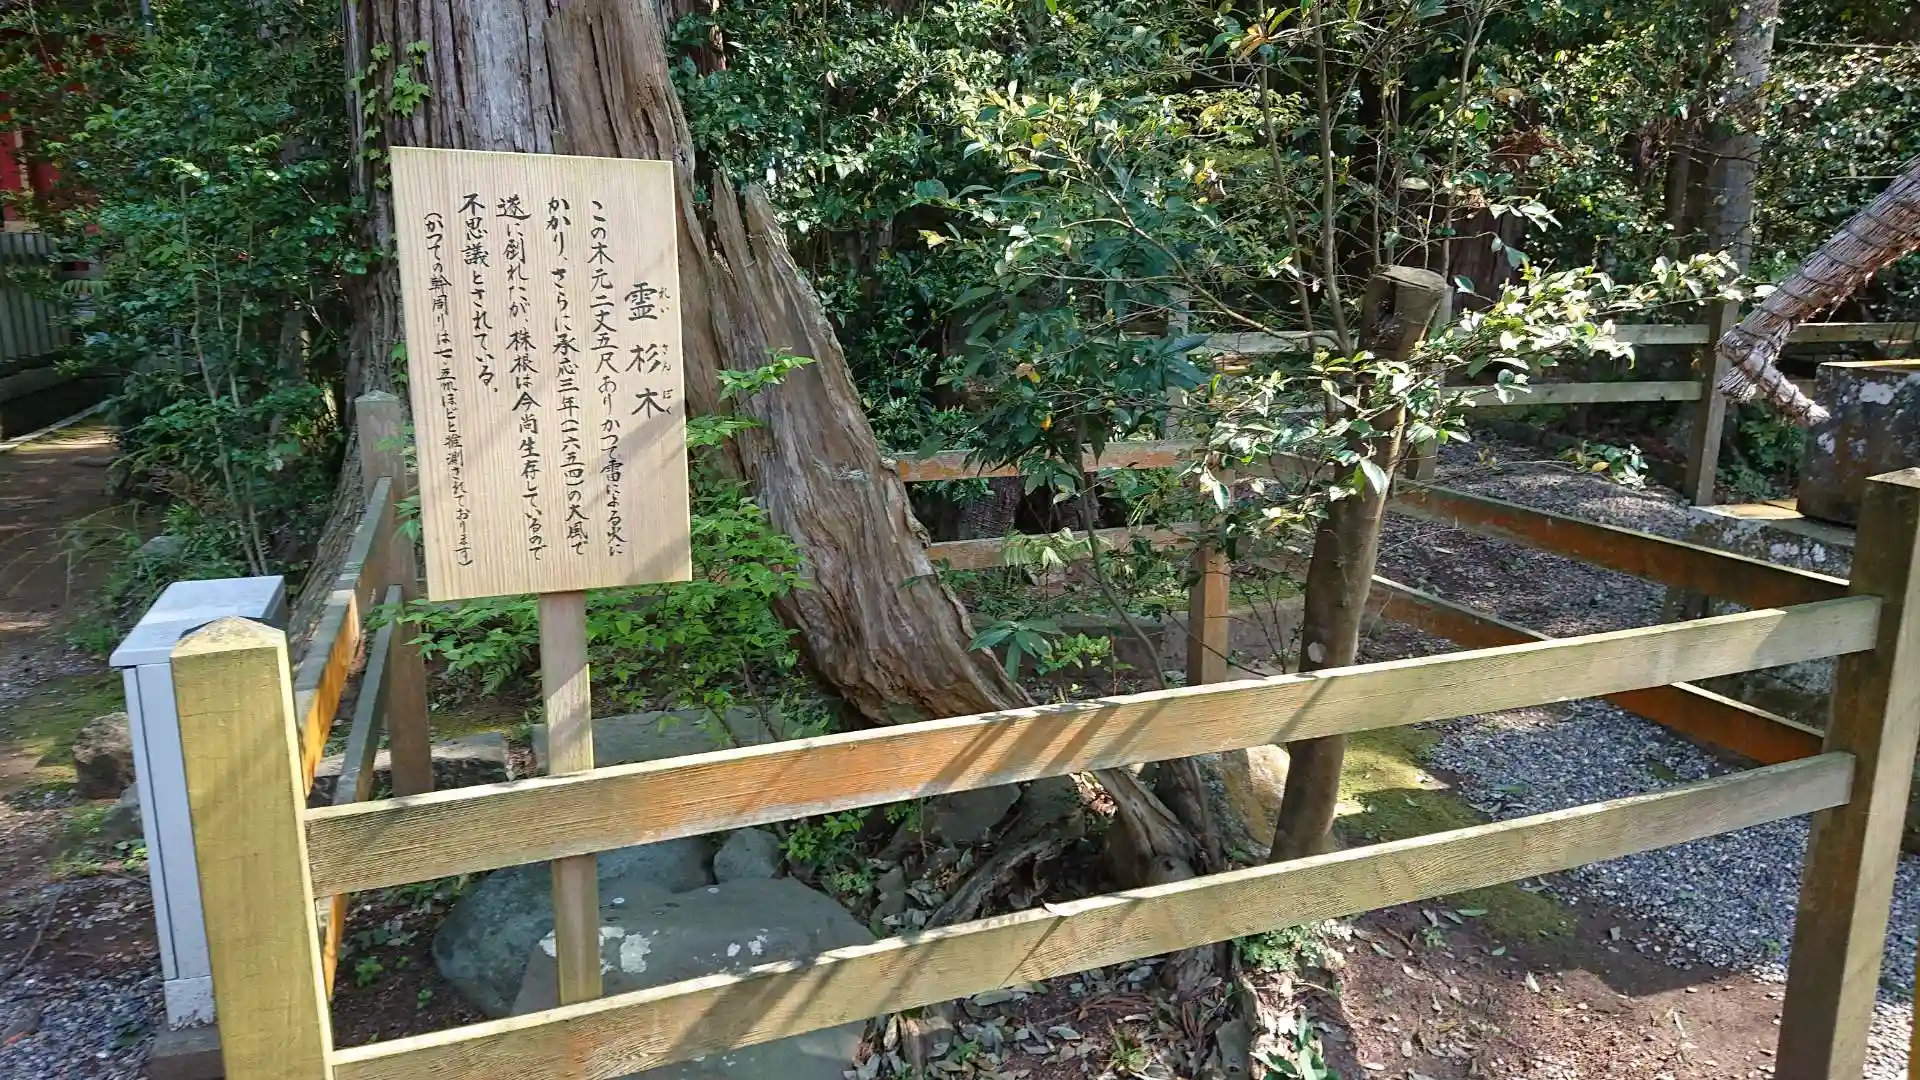 霊杉木
れいさんぼく
この木元二丈五尺ありかつて雷による火に
かかり、さらに承応三年(一六五四)の大風で
遂に倒れたが、株根は今尚生存しているので
不思議とされている。
(かつての幹周りは七・五米ほどと推測されております)